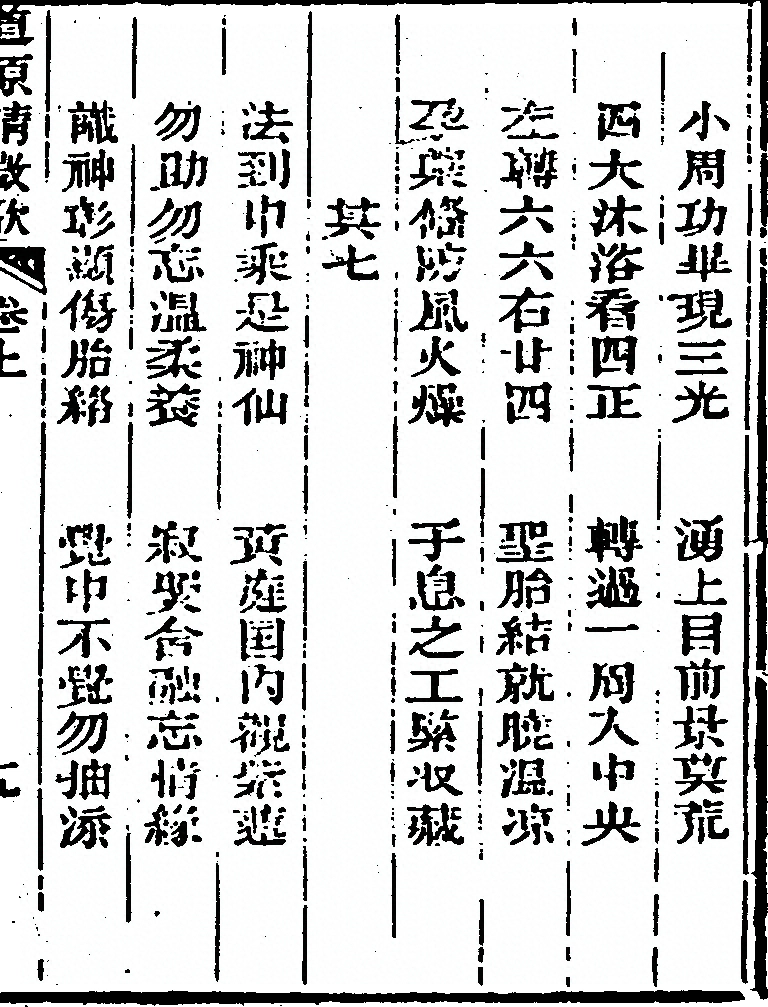 小周功畢現三光　湧上目前景莫荒
四大沐浴看四正　轉過一周入中央
左轉六六右廿四　聖胎結就曉温凉
孕璞俻防風火燥　子息之工緊收藏
其七
法到中乘是神仙　黄庭国内觀紫蓮
勿助勿忘溫柔養　寂契合融忘情緣
識神彰顯傷胎絡　覺中不覺勿抽添
道原精微歌　卷上　九